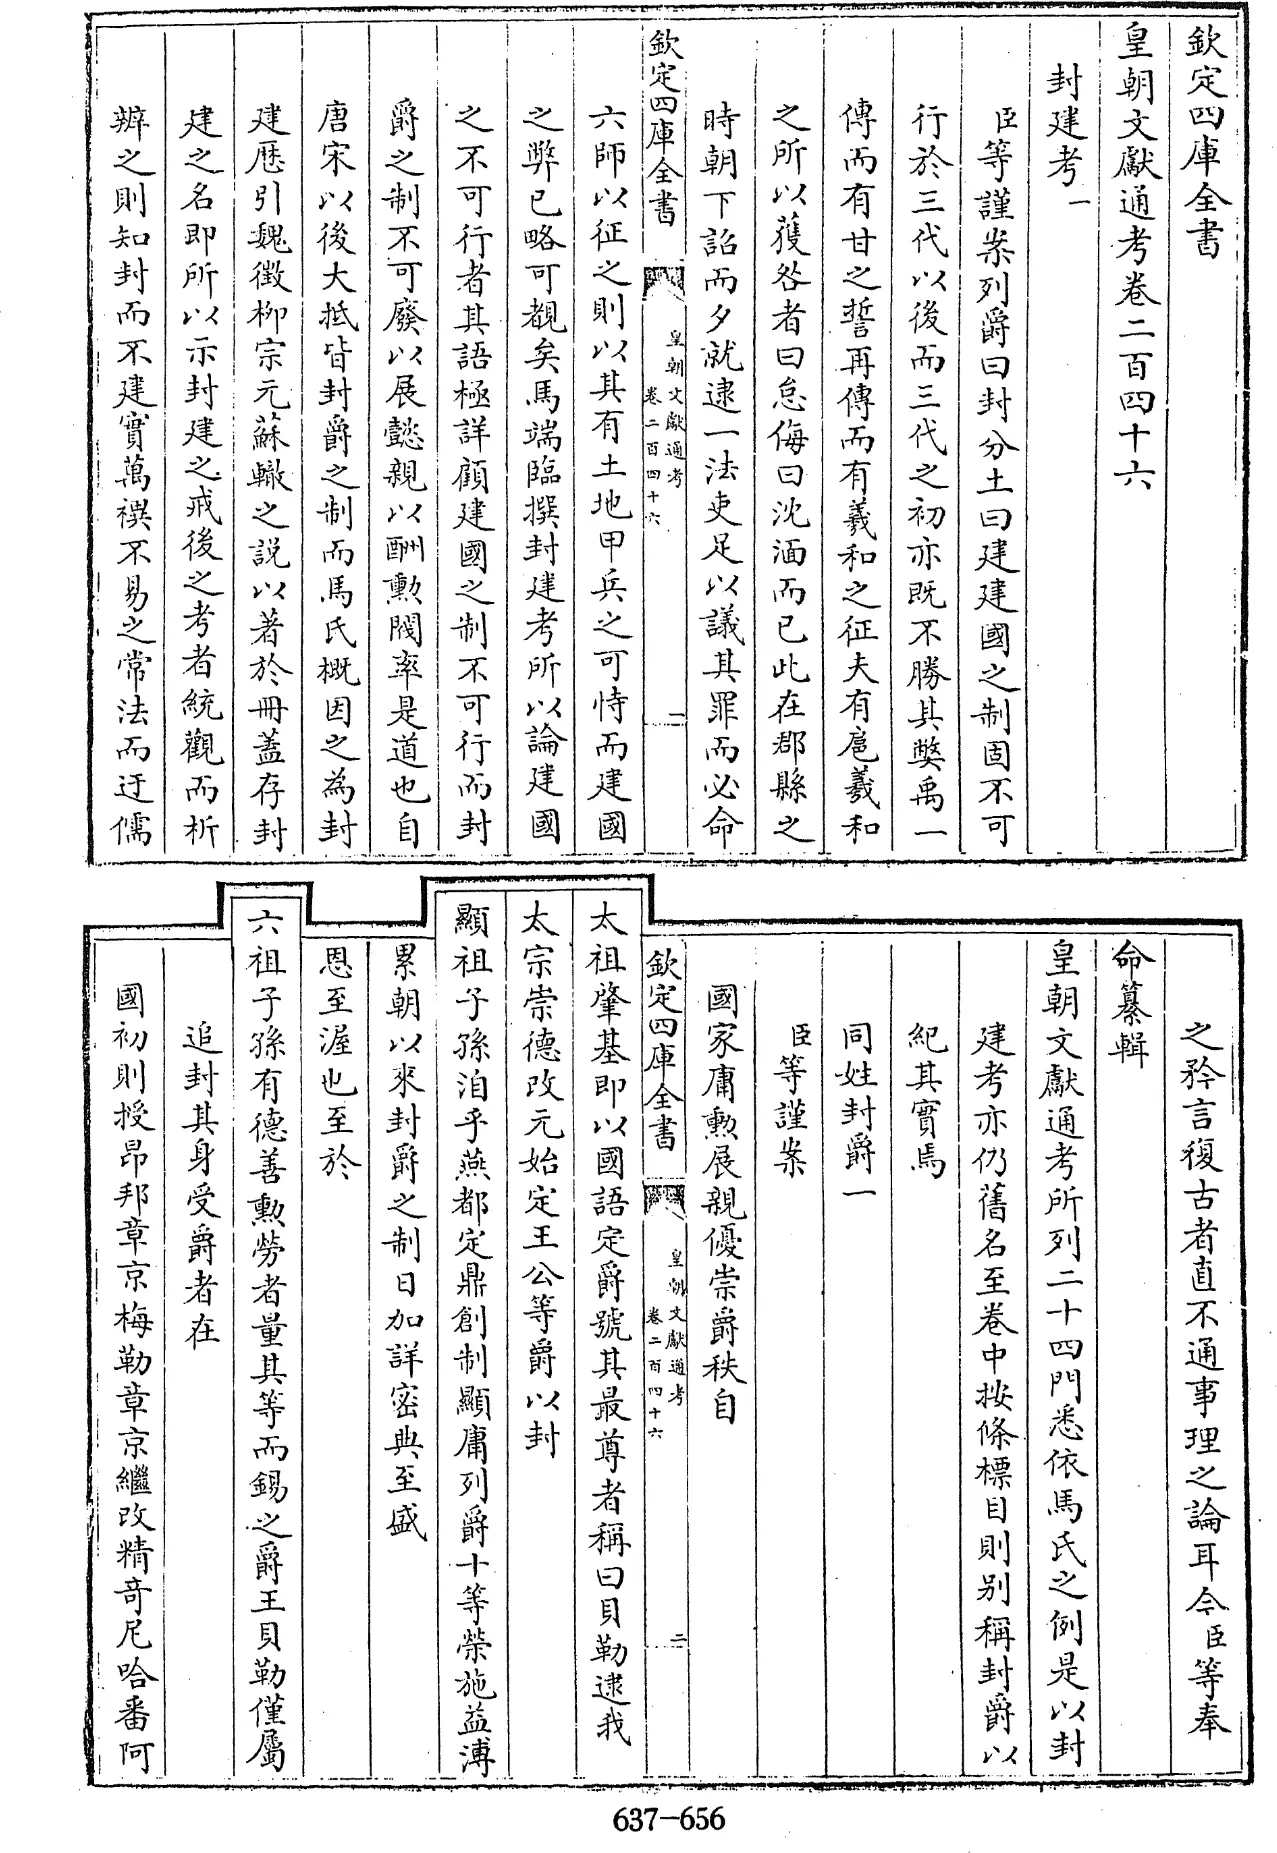 欽定四庫全書
皇朝文獻通考卷二百四十六
封建考一
臣等謹案列爵曰封分土曰建建國之制固不可
行於三代以後而三代之初亦既不勝其弊禹一
傳而有甘之誓再傳而有羲和之征夫有扈羲和
之所以獲咎者曰怠侮曰沈湎而已此在郡縣之
時朝下詔而夕就逮一法吏足以議其罪而必命
欽定四庫全書
皇朝文獻通考
卷二百四十六
一
六師以征之則以其有土地甲兵之可恃而建國
之弊已略可覩矣馬端臨撰封建考所以論建國
之不可行者其語極詳顧建國之制不可行而封
爵之制不可廢以展懿親以酬勲閥率是道也自
唐宋以後大抵皆封爵之制而馬氏概因之為封
建歴引魏徵栁宗元蘇轍之説以著於冊蓋存封
建之名即所以示封建之戒後之考者統觀而析
辨之則知封而不建實萬禩不易之常法而迂儒
之矜言復古者直不通事理之論耳今臣等奉
命纂輯
皇朝文獻通考所列二十四門悉依馬氏之例是以封
建考亦仍舊名至卷中按條標目則别稱封爵以
紀其實焉
同姓封爵一
臣等謹案
國家庸勲展親優崇爵秩自
欽定四庫全書
皇朝文獻通考
卷二百四十六
二
太祖肇基即以國語定爵號其最尊者稱曰貝勒逮我
太宗崇德改元始定王公等爵以封
顯祖子孫洎乎燕都定鼎創制顯庸列爵十等榮施益溥
累朝以來封爵之制日加詳密典至盛
恩至渥也至於
六祖子孫有德善勲勞者量其等而錫之爵王貝勒僅屬
追封其身受爵者在
國初則授昂邦章京梅勒章京繼改精奇尼哈番阿
637-656